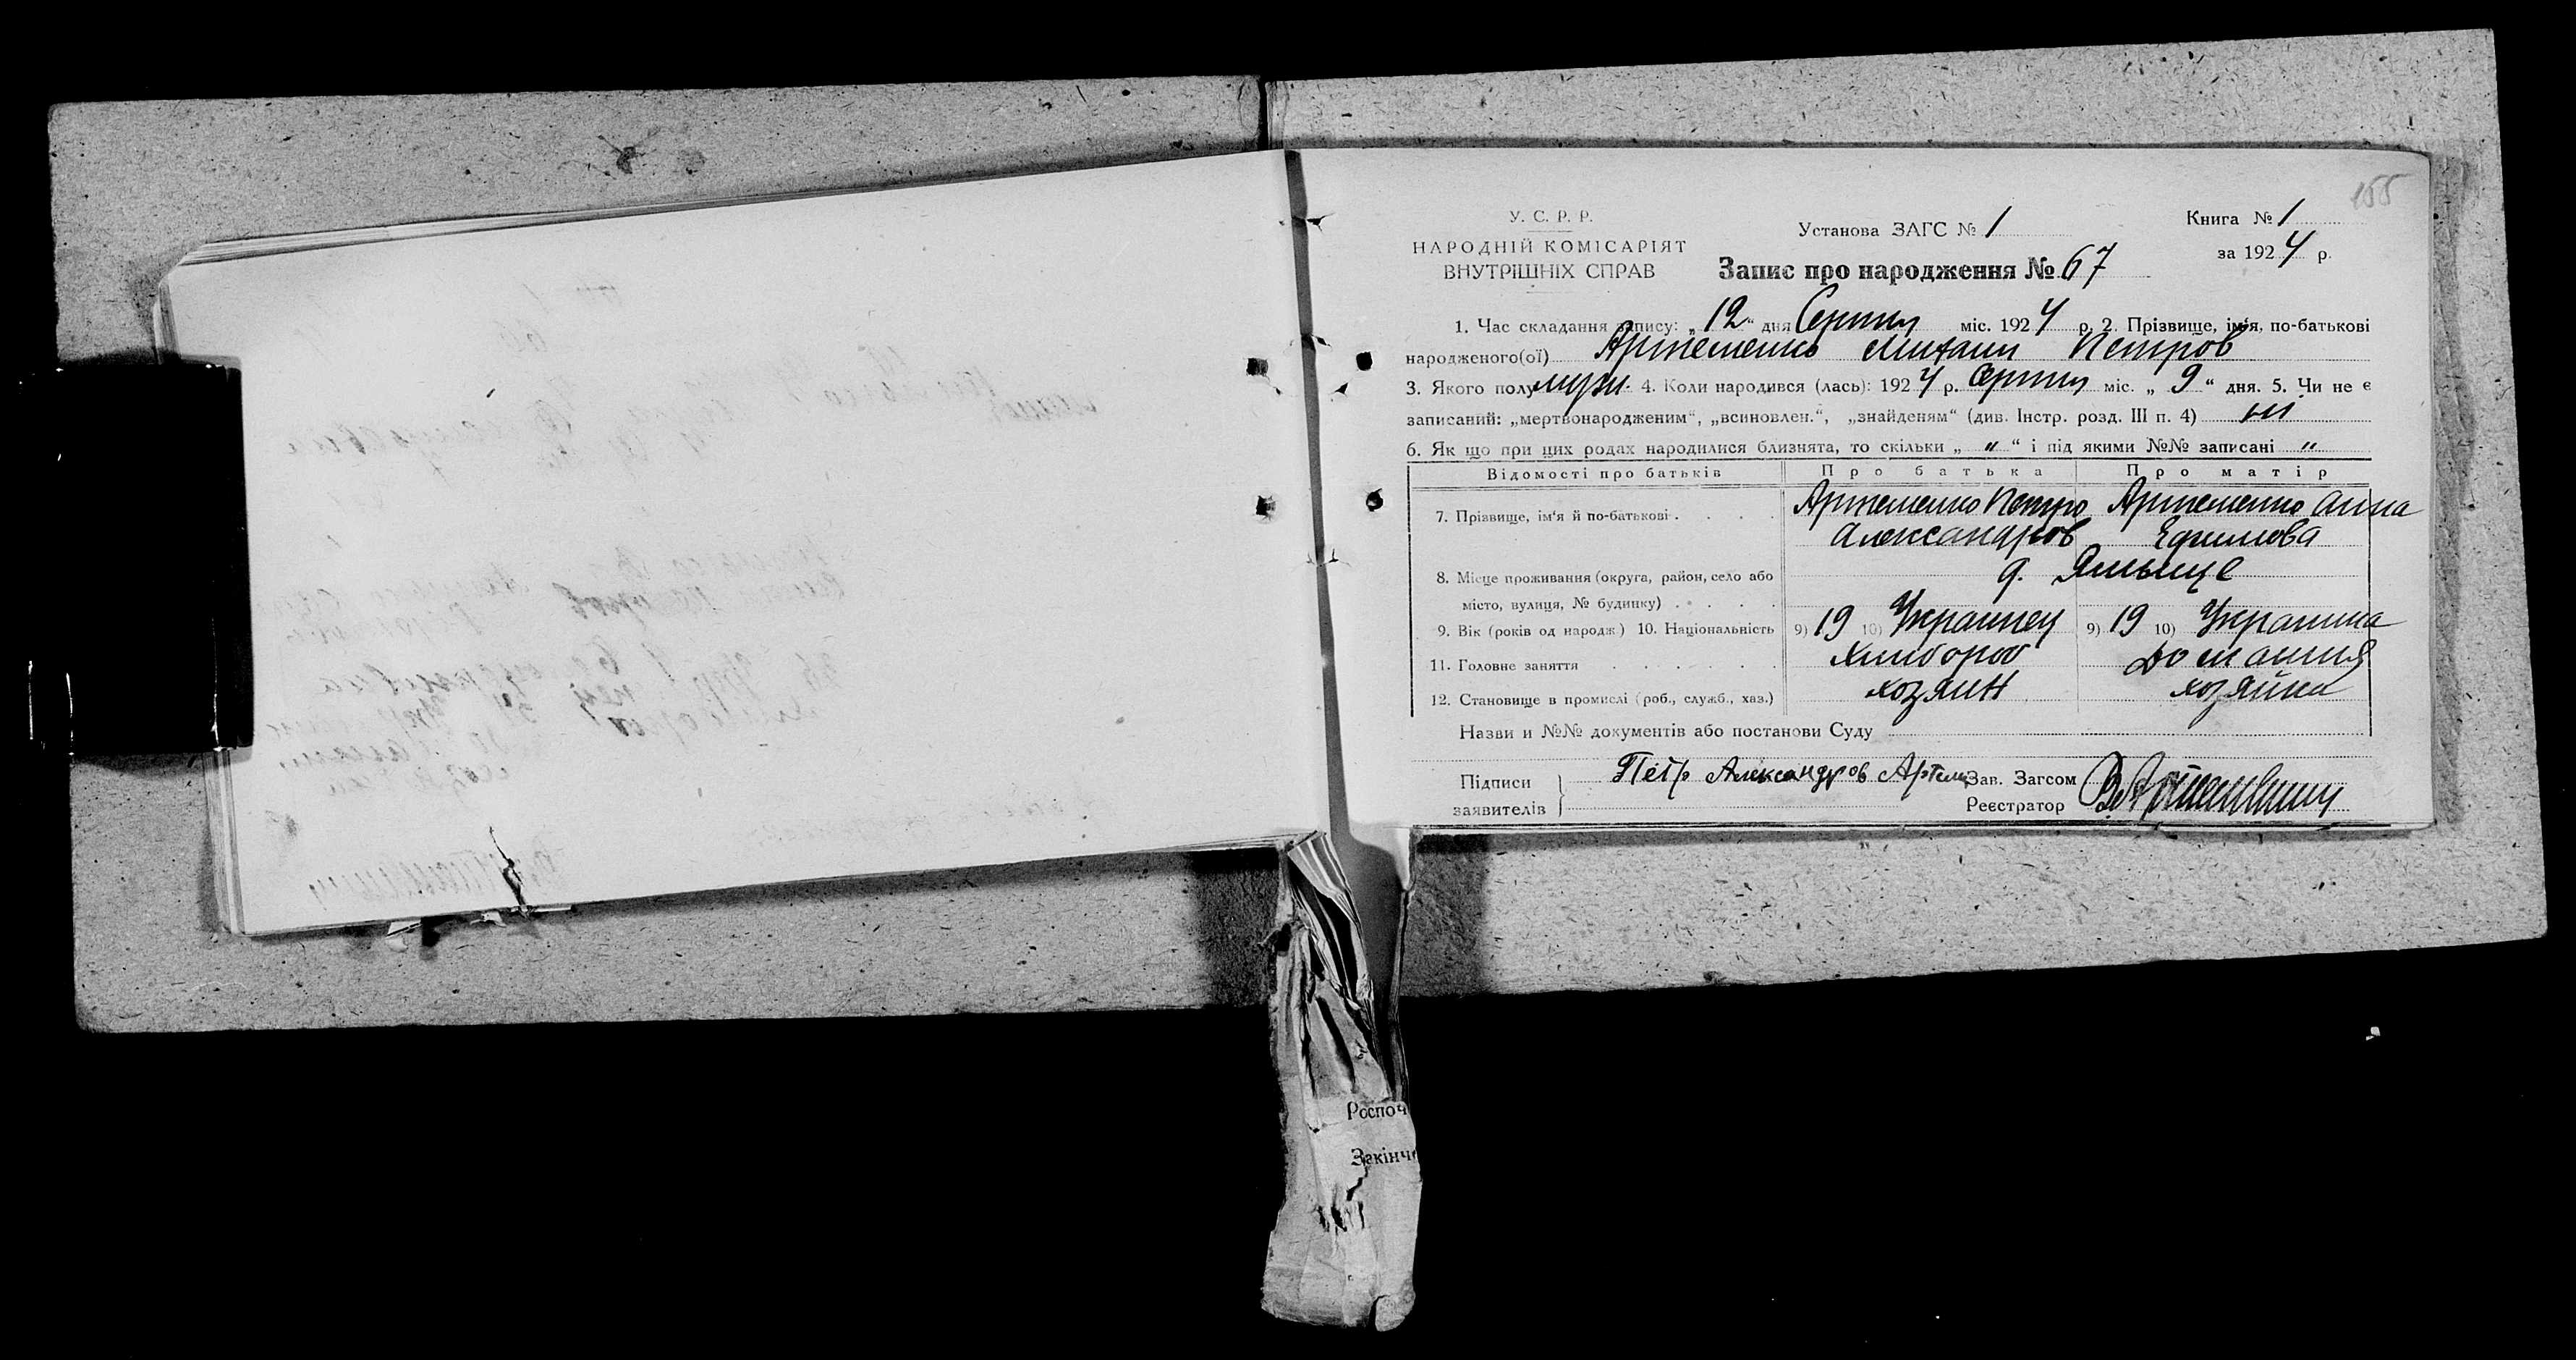 155
У. С. Р. Р.
НАРОДНІЙ КОМІСАРІЯТ
ВНУТРІШНІХ СПРАВ
Установа ЗАГС № 1
Книга № 1
за 1924 р.
Запис про народження № 67
1. Час складання запису: „12“ дня Серпня міс. 1924 р. 2. Прізвище, ім'я, по-батькові
народженого(ої) Артеменко Михаил Петров
3. Якого полу муж. 4. Коли народився (лась): 1924 р. Серпня міс. „9“ дня. 5. Чи не є
записаний: „мертвонародженим“, „всиновлен.“, „знайденям“ (див. Інстр. розд. III п. 4) ні
6. Як що при цих родах народилися близнята, то скільки „ " “ і під якими №№ записані "
Відомості про батьків Про батька Про матір
7. Прізвище, ім'я й по-батькові . . . . Артеменко Петро Артеменко Анна
Александров Ефимова
8. Місце проживання (округа, район, село або
місто, вулиця, № будинку) . . . .
д.
9. Вік (років од народж) 10. Національність 9) 19 10) Украинец 9) 19 10) Украинка
11. Головне заняття . . . . . . Хлибороб Домашня
12. Становище в промислі (роб., служб., хаз.) хозяин хозяйка
Назви и №№ документів або постанови Суду
Підписи
заявителів
Петр Александров Артем
Зав. Загсом
Реєстратор
Роспоч
Закінче